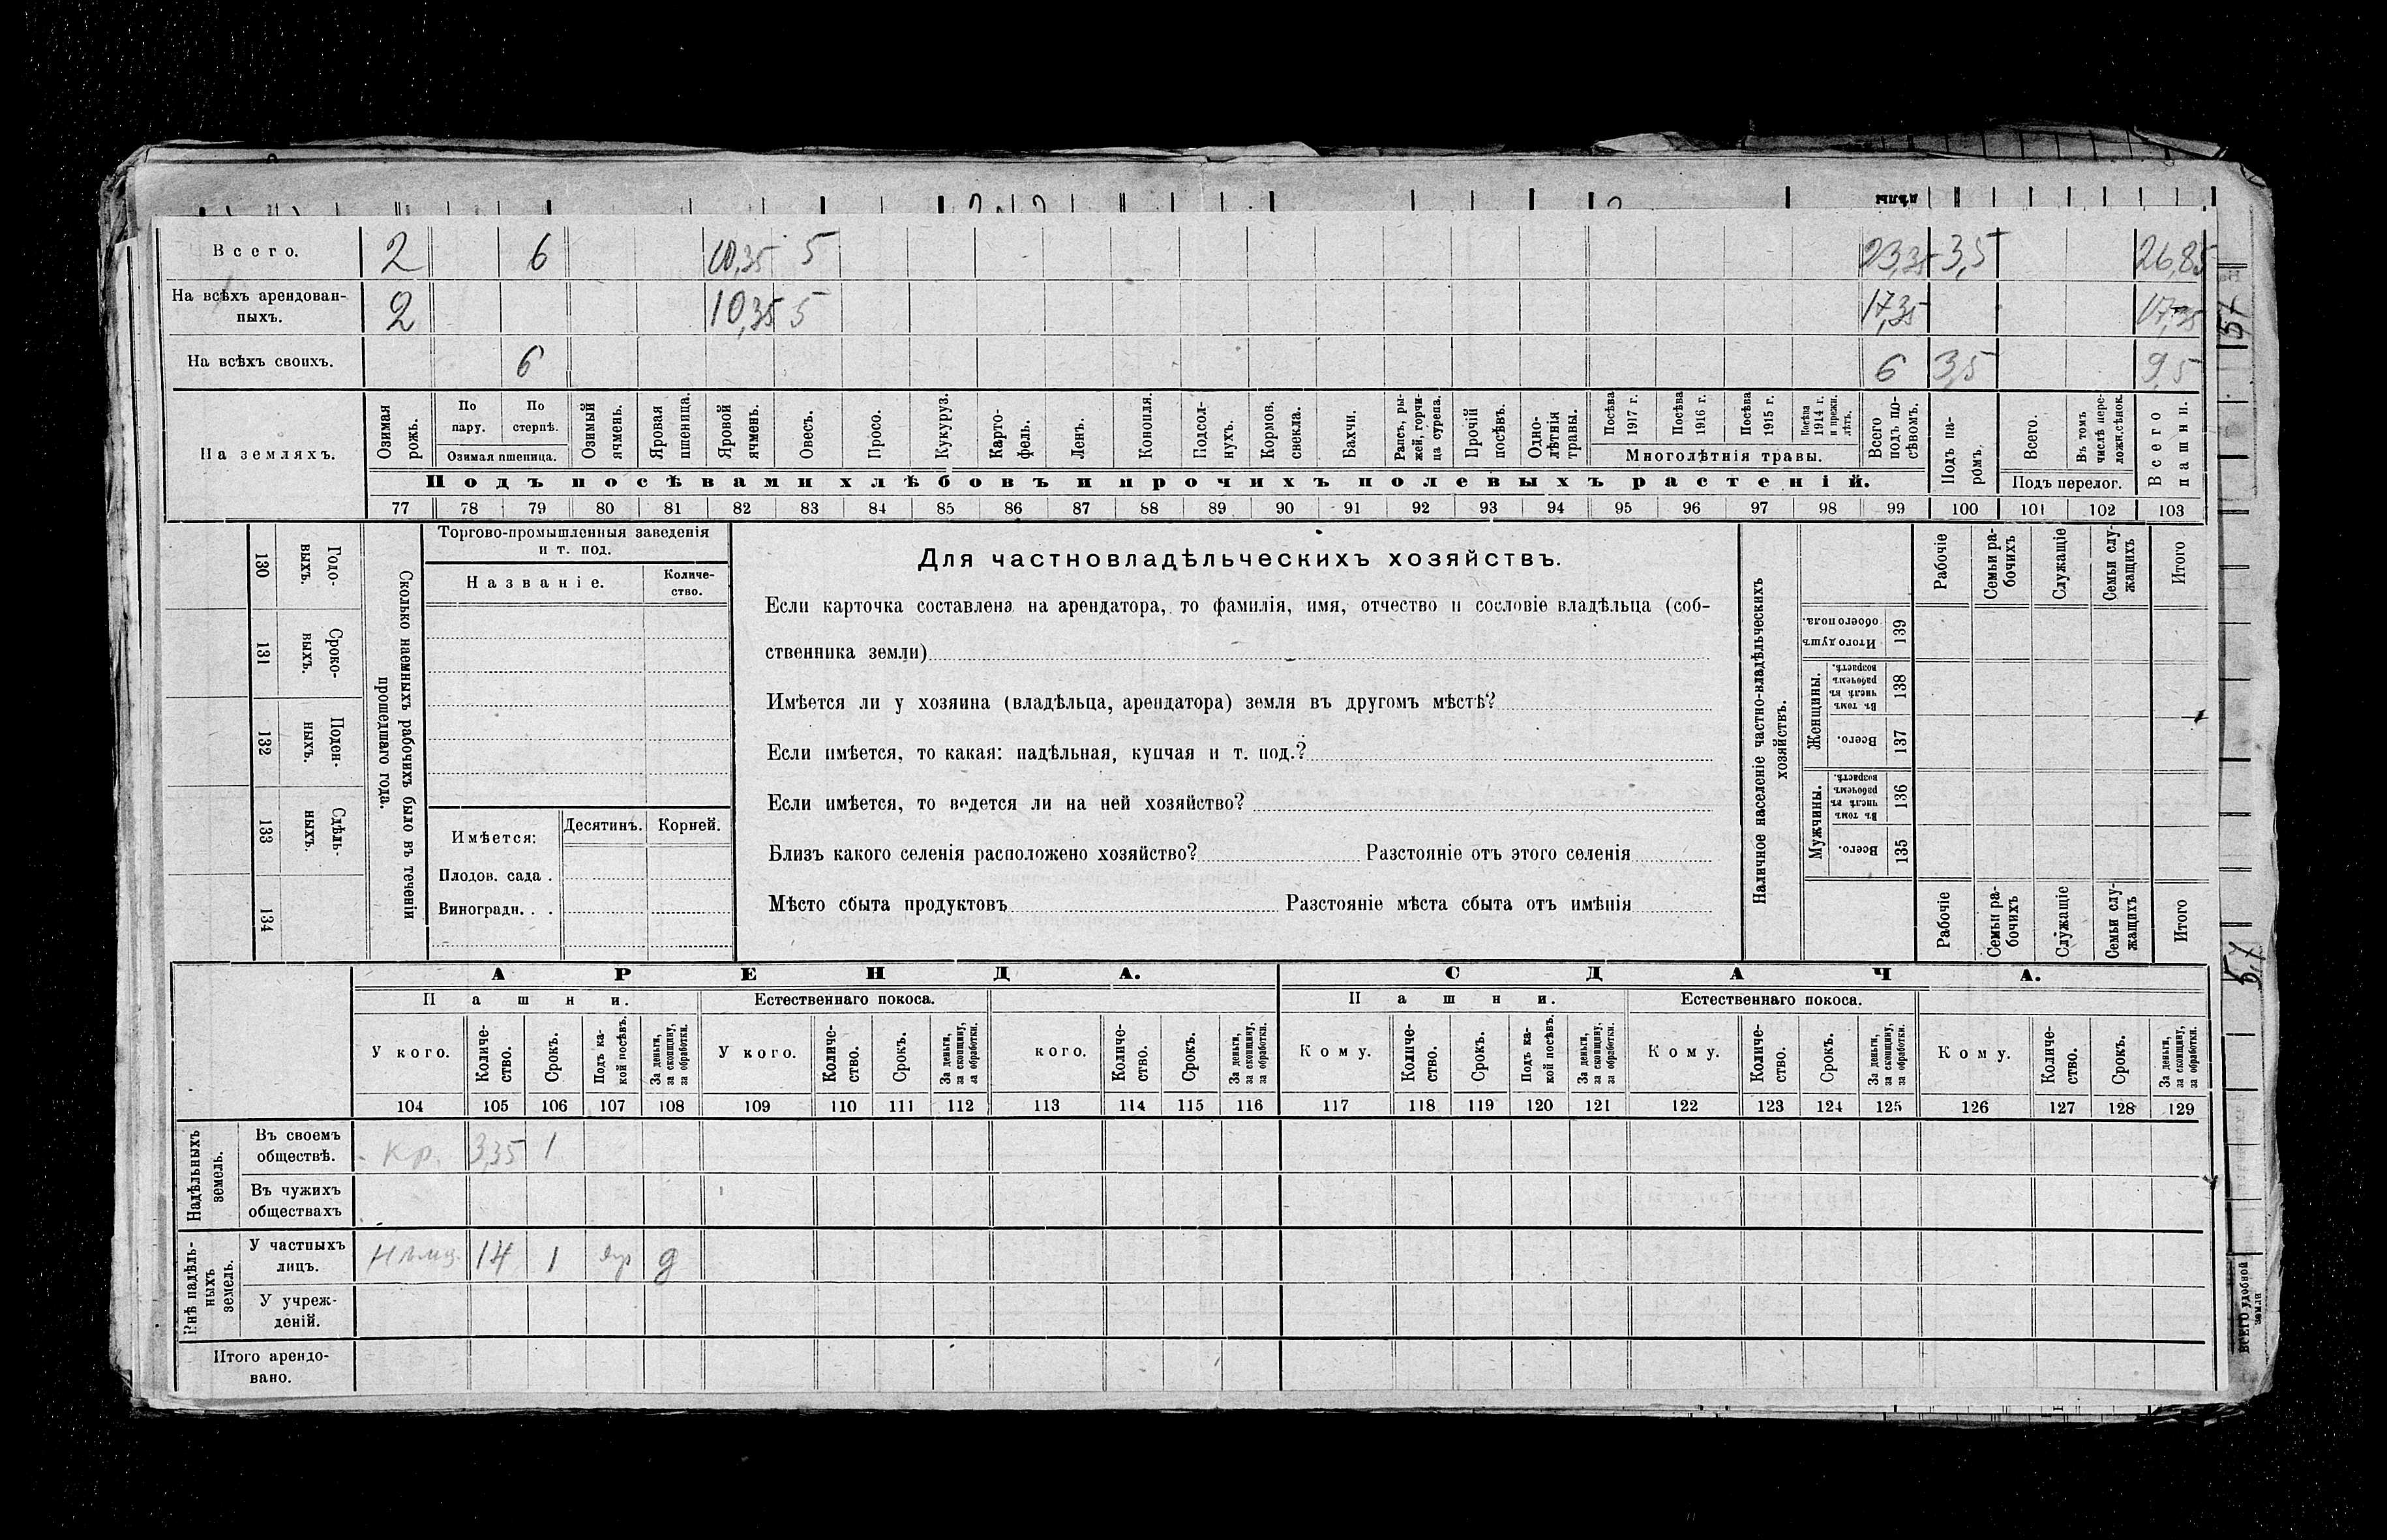 Всего. 2 6 10,35 5 23,35 3,5 26,85
На всѣхъ арендован-
ныхъ. 2 10,35 5 17,35 17,35
На всѣхъ своихъ. 6 6 3,5 9,5
На земляхъ.
Озимая рожь.
По пару.
По стернѣ.
Озимая пшеница.
Озимый ячмень.
Яровая пшеница.
Яровой ячмень.
Овесъ.
Просо.
Кукуруз.
Карто-
фель.
Ленъ.
Конопля.
Подсол-
нухъ.
Кормов.
свекла.
Бахчи.
Рапсъ, ры-
жей, горчи-
ца сурепа.
Прочій
посѣвъ.
Одно-
лѣтнія
травы.
Посѣва
1917 г.
Посѣва
1916 г.
Посѣва
1915 г.
Посѣва
1914 г.
и прежн.
лѣтъ.
Многолѣтнія травы.
Всего
подъ по-
сѣвомъ.
Подъ па-
ромъ.
Всего.
Въ томъ
числѣ пере-
ложн. сѣнок.
Подъ перелог.
Всего
пашни.
Подъ посѣвами хлѣбовъ и прочихъ полевыхъ растеній.
77 78 79 80 81 82 83 84 85 86 87 88 89 90 91 92 93 94 95 96 97 98 99 100 101 102 103
130 Годо-
выхъ.
131 Сроко-
выхъ.
132 Поден-
ныхъ.
133 Сдѣль-
ныхъ.
134
Сколько наемныхъ рабочихъ было въ теченіи
прошедшаго года.
Торгово-промышленныя заведенія
и т. под.
Названіе.
Количе-
ство.
Имѣется:
Десятинъ.
Корней.
Плодов. сада .
Виноградн. . .
Для частновладѣльческихъ хозяйствъ.
Если карточка составлена на арендатора, то фамилія, имя, отчество и сословіе владѣльца (соб-
ственника земли)
Имѣется ли у хозяина (владѣльца, арендатора) земля въ другомъ мѣстѣ?
Если имѣется, то какая: надѣльная, купчая и т. под.?
Если имѣется, то ведется ли на ней хозяйство?
Близъ какого селенія расположено хозяйство? Разстояніе отъ этого селенія
Мѣсто сбыта продуктовъ Разстояніе мѣста сбыта отъ имѣнія
Наличное населеніе частно-владѣльческихъ
хозяйствъ.
Рабочіе
Семьи ра-
бочихъ
Служащіе
Семьи слу-
жащихъ
Итого
Итого душъ
обоего пола. 139
Женщины.
Въ томъ
числѣ въ
рабочемъ
возрастѣ. 138
Всего. 137
Мужчины.
Въ томъ
числѣ въ
рабочемъ
возрастѣ. 136
Всего. 135
Рабочіе
Семьи ра-
бочихъ
Служащіе
Семьи слу-
жащихъ
Итого
АРЕНДА. СДАЧА.
Пашни. Естественнаго покоса. Пашни. Естественнаго покоса.
У кого.
Количе-
ство.
Срокъ.
Подъ ка-
кой посѣвъ.
За деньги,
за скопщину,
за обработки.
У кого.
Количе-
ство.
Срокъ.
За деньги,
за скопщину,
за обработки.
кого.
Количе-
ство.
Срокъ.
За деньги,
за скопщину,
за обработки.
Кому.
Количе-
ство.
Срокъ.
Подъ ка-
кой посѣвъ.
За деньги,
за скопщину,
за обработки.
Кому.
Количе-
ство.
Срокъ.
За деньги,
за скопщину,
за обработки.
Кому.
Количе-
ство.
Срокъ.
За деньги,
за скопщину,
за обработки.
104 105 106 107 108 109 110 111 112 113 114 115 116 117 118 119 120 121 122 123 124 125 126 127 128 129
Надѣльныхъ
земель.
Въ своемъ
обществѣ. Кр. 3,35 1
Въ чужихъ
обществахъ
Внѣ надѣль-
ныхъ
земель.
У частныхъ
лицъ. 14 1 яр д
У учреж-
деній.
Итого арендо-
вано.
57
57
Всего удобной
земли